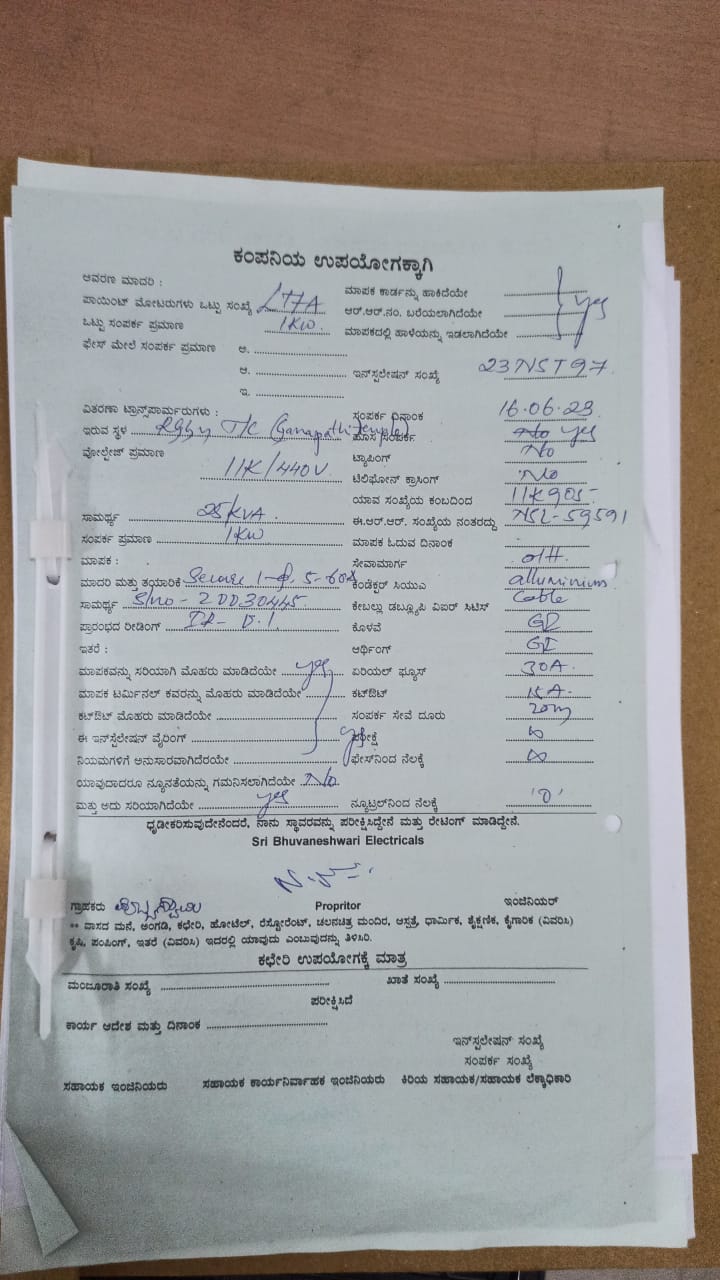 ಕಂಪನಿಯ ಉಪಯೋಗಕ್ಕಾಗಿ
ಆವರಣ ಮಾದರಿ :
ಮಾಪಕ ಕಾರ್ಡನ್ನು ಹಾಕಿದೆಯೇ
ಪಾಯಿಂಟ್ ಮೋಟರುಗಳು ಒಟ್ಟು ಸಂಖ್ಯೆ
ಆರ್.ಆರ್.ನಂ. ಬರೆಯಲಾಗಿದೆಯೇ yes
ಒಟ್ಟು ಸಂಪರ್ಕ ಪ್ರಮಾಣ 1KW.
ಮಾಪಕದಲ್ಲಿ ಹಾಳೆಯನ್ನು ಇಡಲಾಗಿದೆಯೇ
ಫೇಸ್ ಮೇಲೆ ಸಂಪರ್ಕ ಪ್ರಮಾಣ ಅ.
ಆ. ಇನ್‌ಸ್ಟಲೇಷನ್ ಸಂಖ್ಯೆ 23NST97
ಇ.
ವಿತರಣಾ ಟ್ರಾನ್ಸ್‌ಪಾರ್ಮರುಗಳು :
ಸಂಪರ್ಕ ದಿನಾಂಕ 16.06.23
ಇರುವ ಸ್ಥಳ T/C (Ganapathi Temple)
ಹೊಸ ಸಂಪರ್ಕ No yes
ವೋಲ್ಟೇಜ್ ಪ್ರಮಾಣ 11K/440V
ಟ್ಯಾಪಿಂಗ್ No
ಟೆಲಿಫೋನ್ ಕ್ರಾಸಿಂಗ್ No
ಯಾವ ಸಂಖ್ಯೆಯ ಕಂಬದಿಂದ
ಸಾಮರ್ಥ್ಯ 25/KVA
ಈ.ಆರ್.ಆರ್. ಸಂಖ್ಯೆಯ ನಂತರದ್ದು NSL-59591
ಸಂಪರ್ಕ ಪ್ರಮಾಣ 1KW
ಮಾಪಕ ಓದುವ ದಿನಾಂಕ
ಮಾಪಕ :
ಸೇವಾಮಾರ್ಗ O/H.
ಮಾದರಿ ಮತ್ತು ತಯಾರಿಕೆ Secure 1-Φ, 5-60A
ಕಂಡೆಕ್ಟರ್ ಸಿಯುಎ alluminium
ಸಾಮರ್ಥ್ಯ S/no - 20030445
ಕೇಬಲ್ಲು ಡಬ್ಲ್ಯೂಪಿ ವಿಐರ್ ಸಿಟಿಸ್ Cable
ಪ್ರಾರಂಭದ ರೀಡಿಂಗ್
ಕೊಳವೆ GI
ಇತರೆ :
ಆರ್ಥಿಂಗ್ GI
ಮಾಪಕವನ್ನು ಸರಿಯಾಗಿ ಮೊಹರು ಮಾಡಿದೆಯೇ yes
ಏರಿಯಲ್ ಫ್ಯೂಸ್ 30A.
ಮಾಪಕ ಟರ್ಮಿನಲ್ ಕವರನ್ನು ಮೊಹರು ಮಾಡಿದೆಯೇ
ಕಟ್‌ಔಟ್ 15A.
ಕಟ್‌ಔಟ್ ಮೊಹರು ಮಾಡಿದೆಯೇ
ಸಂಪರ್ಕ ಸೇವೆ ದೂರು 20m
ಈ ಇನ್‌ಸ್ಟಲೇಷನ್ ವೈರಿಂಗ್ yes
ಪರೀಕ್ಷೆ ∞
ನಿಯಮಗಳಿಗೆ ಅನುಸಾರವಾಗಿದೆರಯೇ
ಫೇಸ್‌ನಿಂದ ನೆಲಕ್ಕೆ ∞
ಯಾವುದಾದರೂ ನ್ಯೂನತೆಯನ್ನು ಗಮನಿಸಲಾಗಿದೆಯೇ No
ಮತ್ತು ಅದು ಸರಿಯಾಗಿದೆಯೇ yes
ನ್ಯೂಟ್ರಲ್‌ನಿಂದ ನೆಲಕ್ಕೆ '0'
ಧೃಡೀಕರಿಸುವುದೇನೆಂದರೆ, ನಾನು ಸ್ಥಾವರವನ್ನು ಪರೀಕ್ಷಿಸಿದ್ದೇನೆ ಮತ್ತು ರೇಟಿಂಗ್ ಮಾಡಿದ್ದೇನೆ.
Sri Bhuvaneshwari Electricals
ಗ್ರಾಹಕರು
Propritor
ಇಂಜಿನಿಯರ್
** ವಾಸದ ಮನೆ, ಅಂಗಡಿ, ಕಛೇರಿ, ಹೋಟೆಲ್, ರೆಸ್ಟೋರೆಂಟ್, ಚಲನಚಿತ್ರ ಮಂದಿರ, ಆಸ್ಪತ್ರೆ, ಧಾರ್ಮಿಕ, ಶೈಕ್ಷಣಿಕ, ಕೈಗಾರಿಕ (ವಿವರಿಸಿ)
ಕೃಷಿ, ಪಂಪಿಂಗ್, ಇತರೆ (ವಿವರಿಸಿ) ಇದರಲ್ಲಿ ಯಾವುದು ಎಂಬುವುದನ್ನು ತಿಳಿಸಿರಿ.
ಕಛೇರಿ ಉಪಯೋಗಕ್ಕೆ ಮಾತ್ರ
ಮಂಜೂರಾತಿ ಸಂಖ್ಯೆ
ಖಾತೆ ಸಂಖ್ಯೆ
ಪರೀಕ್ಷಿಸಿದೆ
ಕಾರ್ಯ ಆದೇಶ ಮತ್ತು ದಿನಾಂಕ
ಇನ್‌ಸ್ಟಲೇಷನ್ ಸಂಖ್ಯೆ
ಸಂಪರ್ಕ ಸಂಖ್ಯೆ
ಸಹಾಯಕ ಇಂಜಿನಿಯರು ಸಹಾಯಕ ಕಾರ್ಯನಿರ್ವಾಹಕ ಇಂಜಿನಿಯರು ಕಿರಿಯ ಸಹಾಯಕ/ಸಹಾಯಕ ಲೆಕ್ಕಾಧಿಕಾರಿ